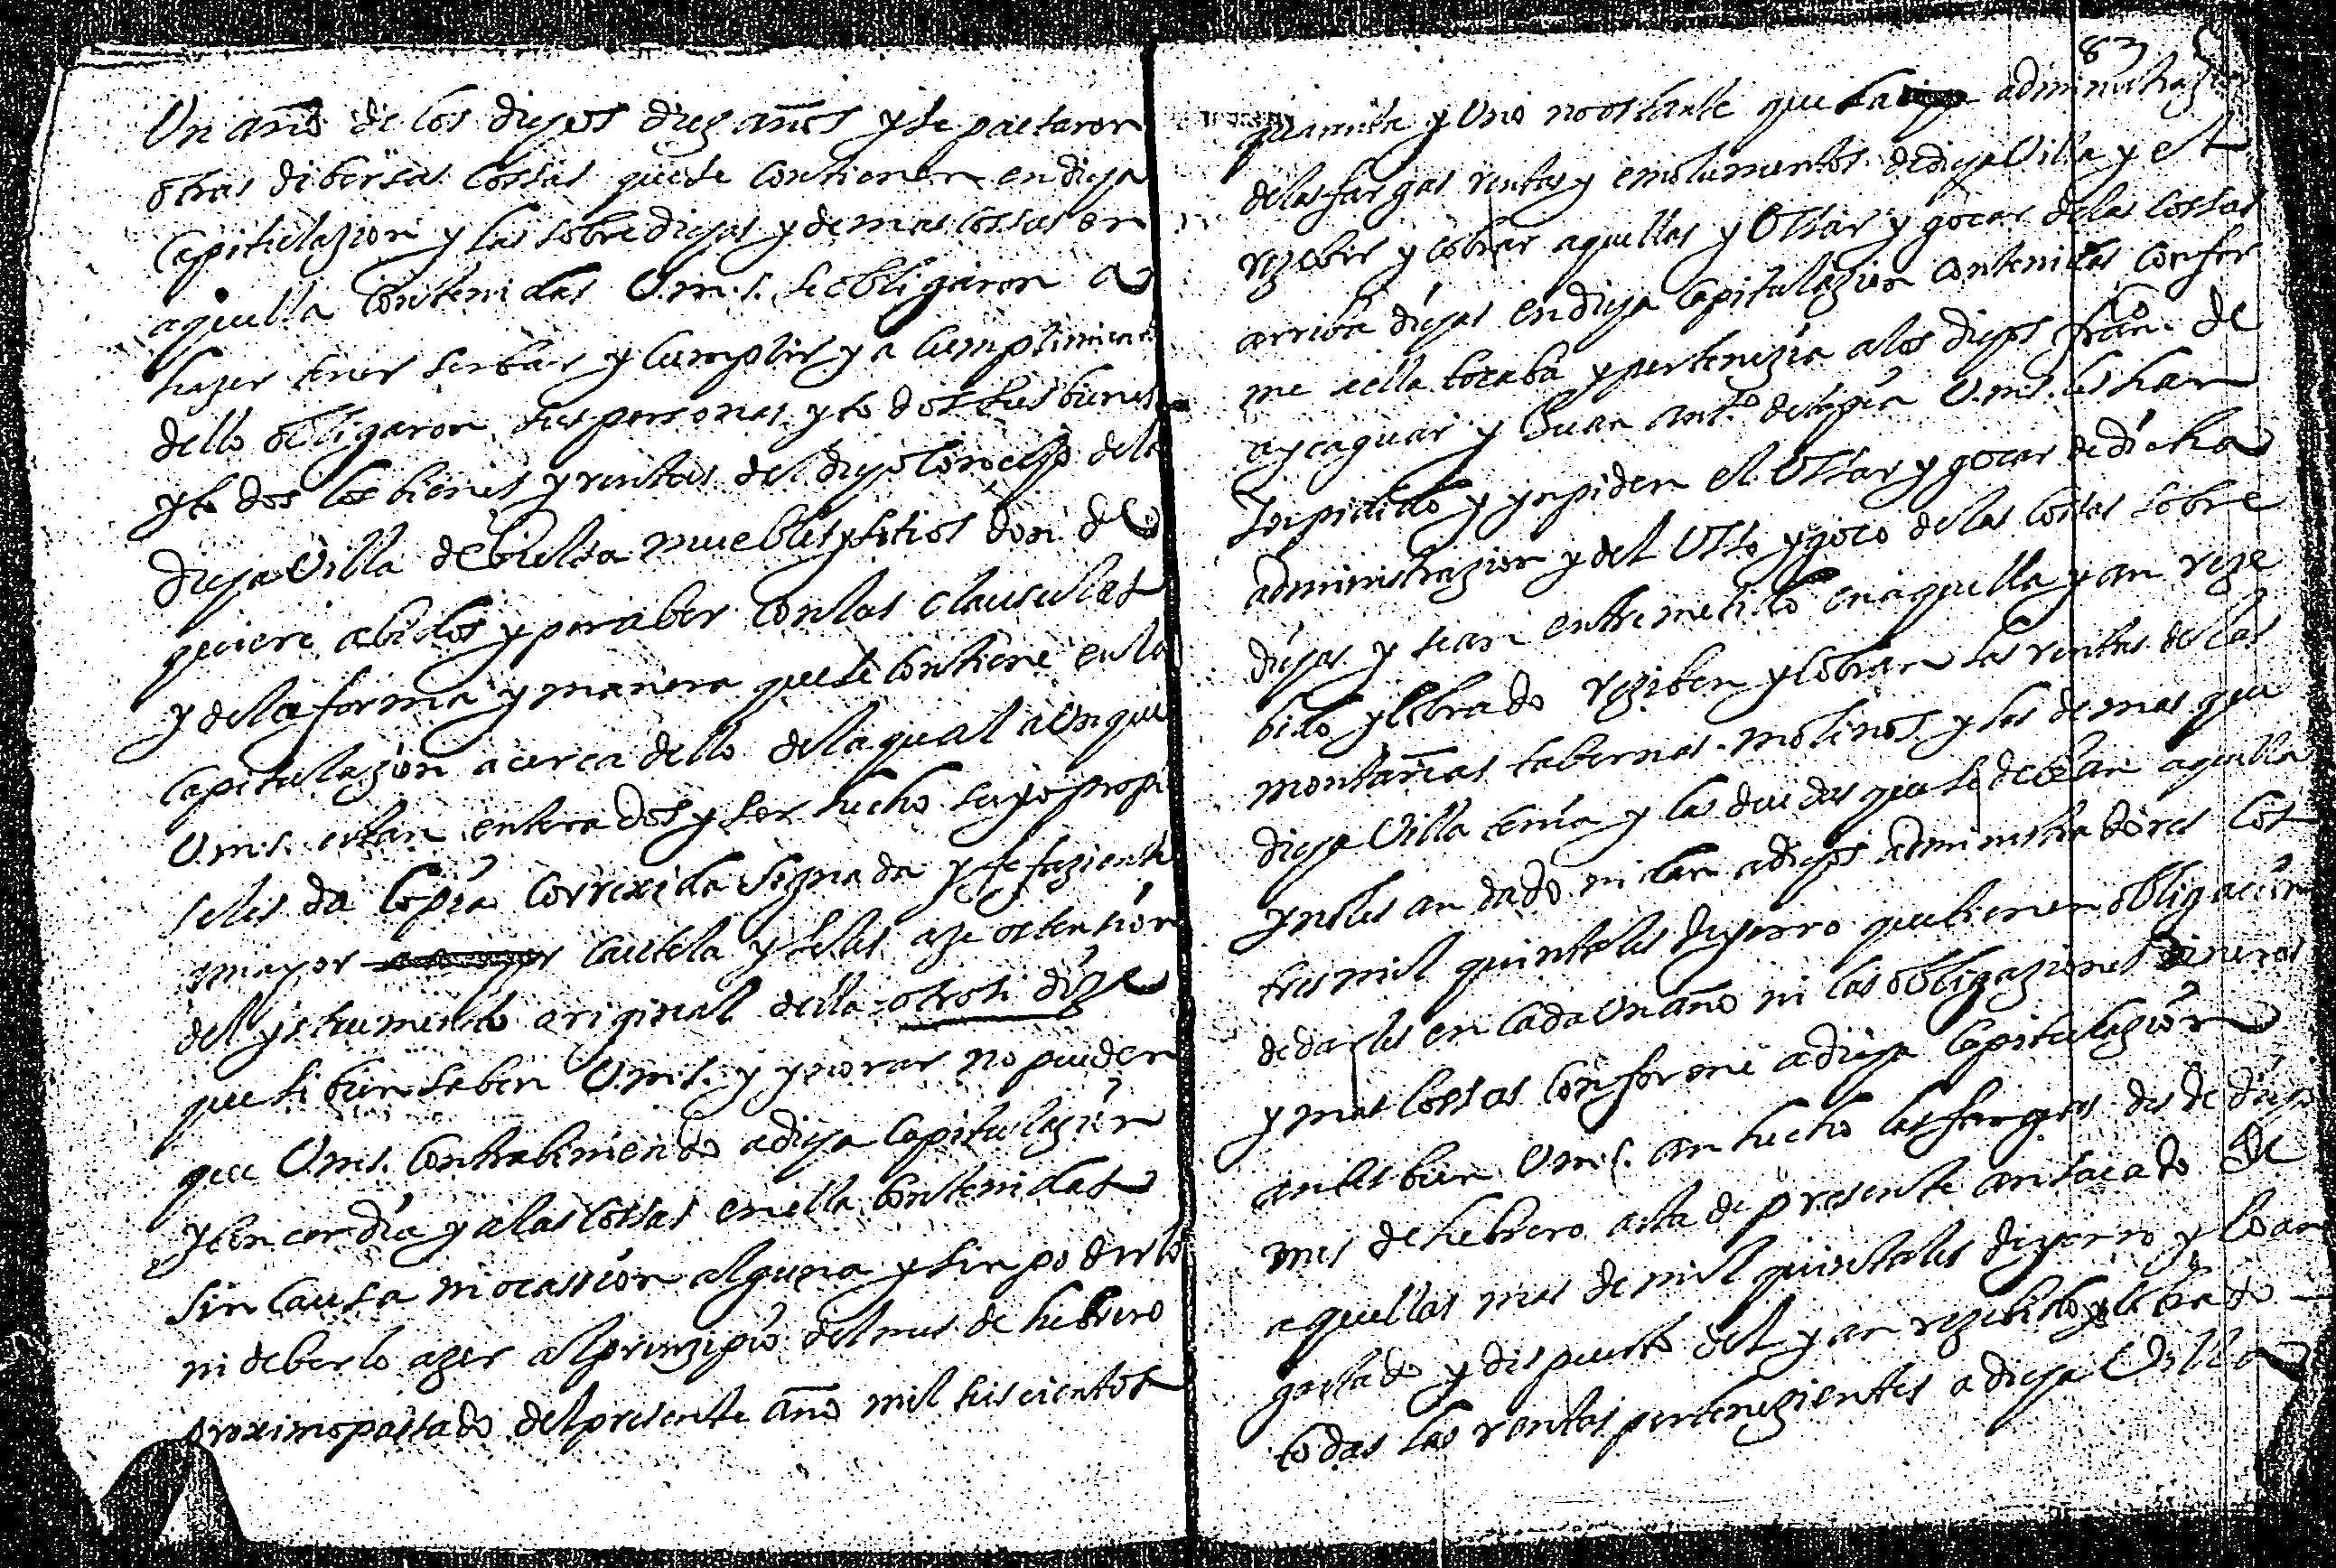 Un año de los dichos diez años y se pactaron
otras dibersas cossas que se contienen en dicha
Capitulazion y las sobredichas y demas cossas en
aquella contenidas V.ms. se obligaron a
hazer tener serbar y cumplir y a cumplimiento
dello obligaron sus personas y todos sus bienes
y todos los bienes y rentas del dicho Concejo dela
dicha Villa de bielsa muebles y sitios don de
quiere abidos y por aber con las clausulas
y dela forma y manera que se contiene en la
Capitulazion acerca dello dela qual aunque
V.ms. estan enterados y ser hecho suyo propi
seles da copia correxida signada y fefaziente
mayor cautela y seles aze ostension
del ystrumento original della otrosi dize
que si bien saben V.ms. y ynorar no pueden
que V.ms. contrabiniendo a dicha Capitulazion
y concordia y a las cossas en ella contenidas
sin causa ni ocassion alguna y sin poderlo
ni deberlo azer al prinzipio del mes de hebrero
proximo passado del presente año mil seiscientos
83
quarenta y uno no ostante que la administrazion
delas fargas rentas y emolumentos de dicha Villa y el
rezebir y cobrar aquellas y Ussar y goçar delas cossas
arriba dichas en dicha Capitulazion contenidas confor
me a ella tocaba y pertenezia a los dichos Franco. de
aycaguar y Juan Anto. V.ms. les han
Inpidido y ynpiden el Ussar y goçar de dicha
administrazion y del Usso y goço delas cossas sobre
dichas y sean entremetido en aquella y an reze
bido y cobrado reziben y cobran las rentas delas
montañas tabernas molinos y las demas que
dicha Villa tenia y las deudas que se debian aquella
y no les an dado ni dan a dichos administradores los
tres mil quintales de yerro que tienen obligacion
de darles en cada Un año ni las obligaziones dineros
y mas cossas conforme a dicha Capitulazion
antes bien V.ms. an hecho las fargas desde dicho
mes de hebrero asta de presente an sacado de
aquellas mas de mil quintales de yerro y lo an
gastado y dispuesto del y an rezebido y cobrado
todas las rentas pertenezientes a dicha Villa